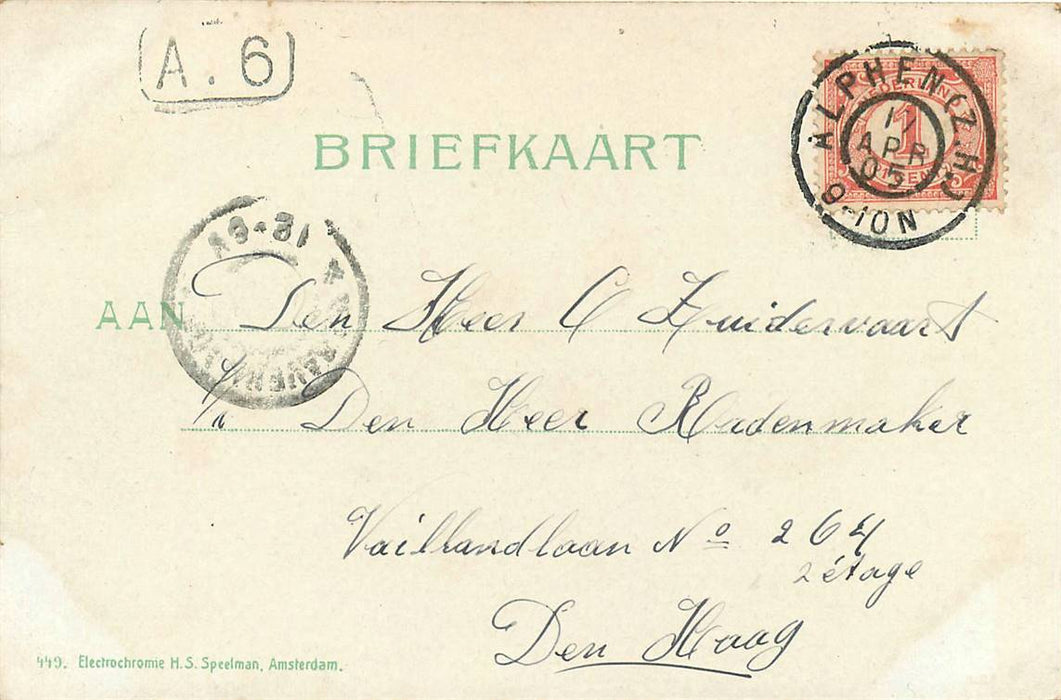 A. 6
BRIEFKAART
NEDERLAND
1
CENT
ALPHEN (Z.H.)
APR
05
9-10N
12-6V
4
AAN Den Heer C Zuidervaart
p/a Den Heer Radenmaker
Vaillandlaan No 264
2 étage
Den Haag
449. Electrochromie H.S. Speelman, Amsterdam.